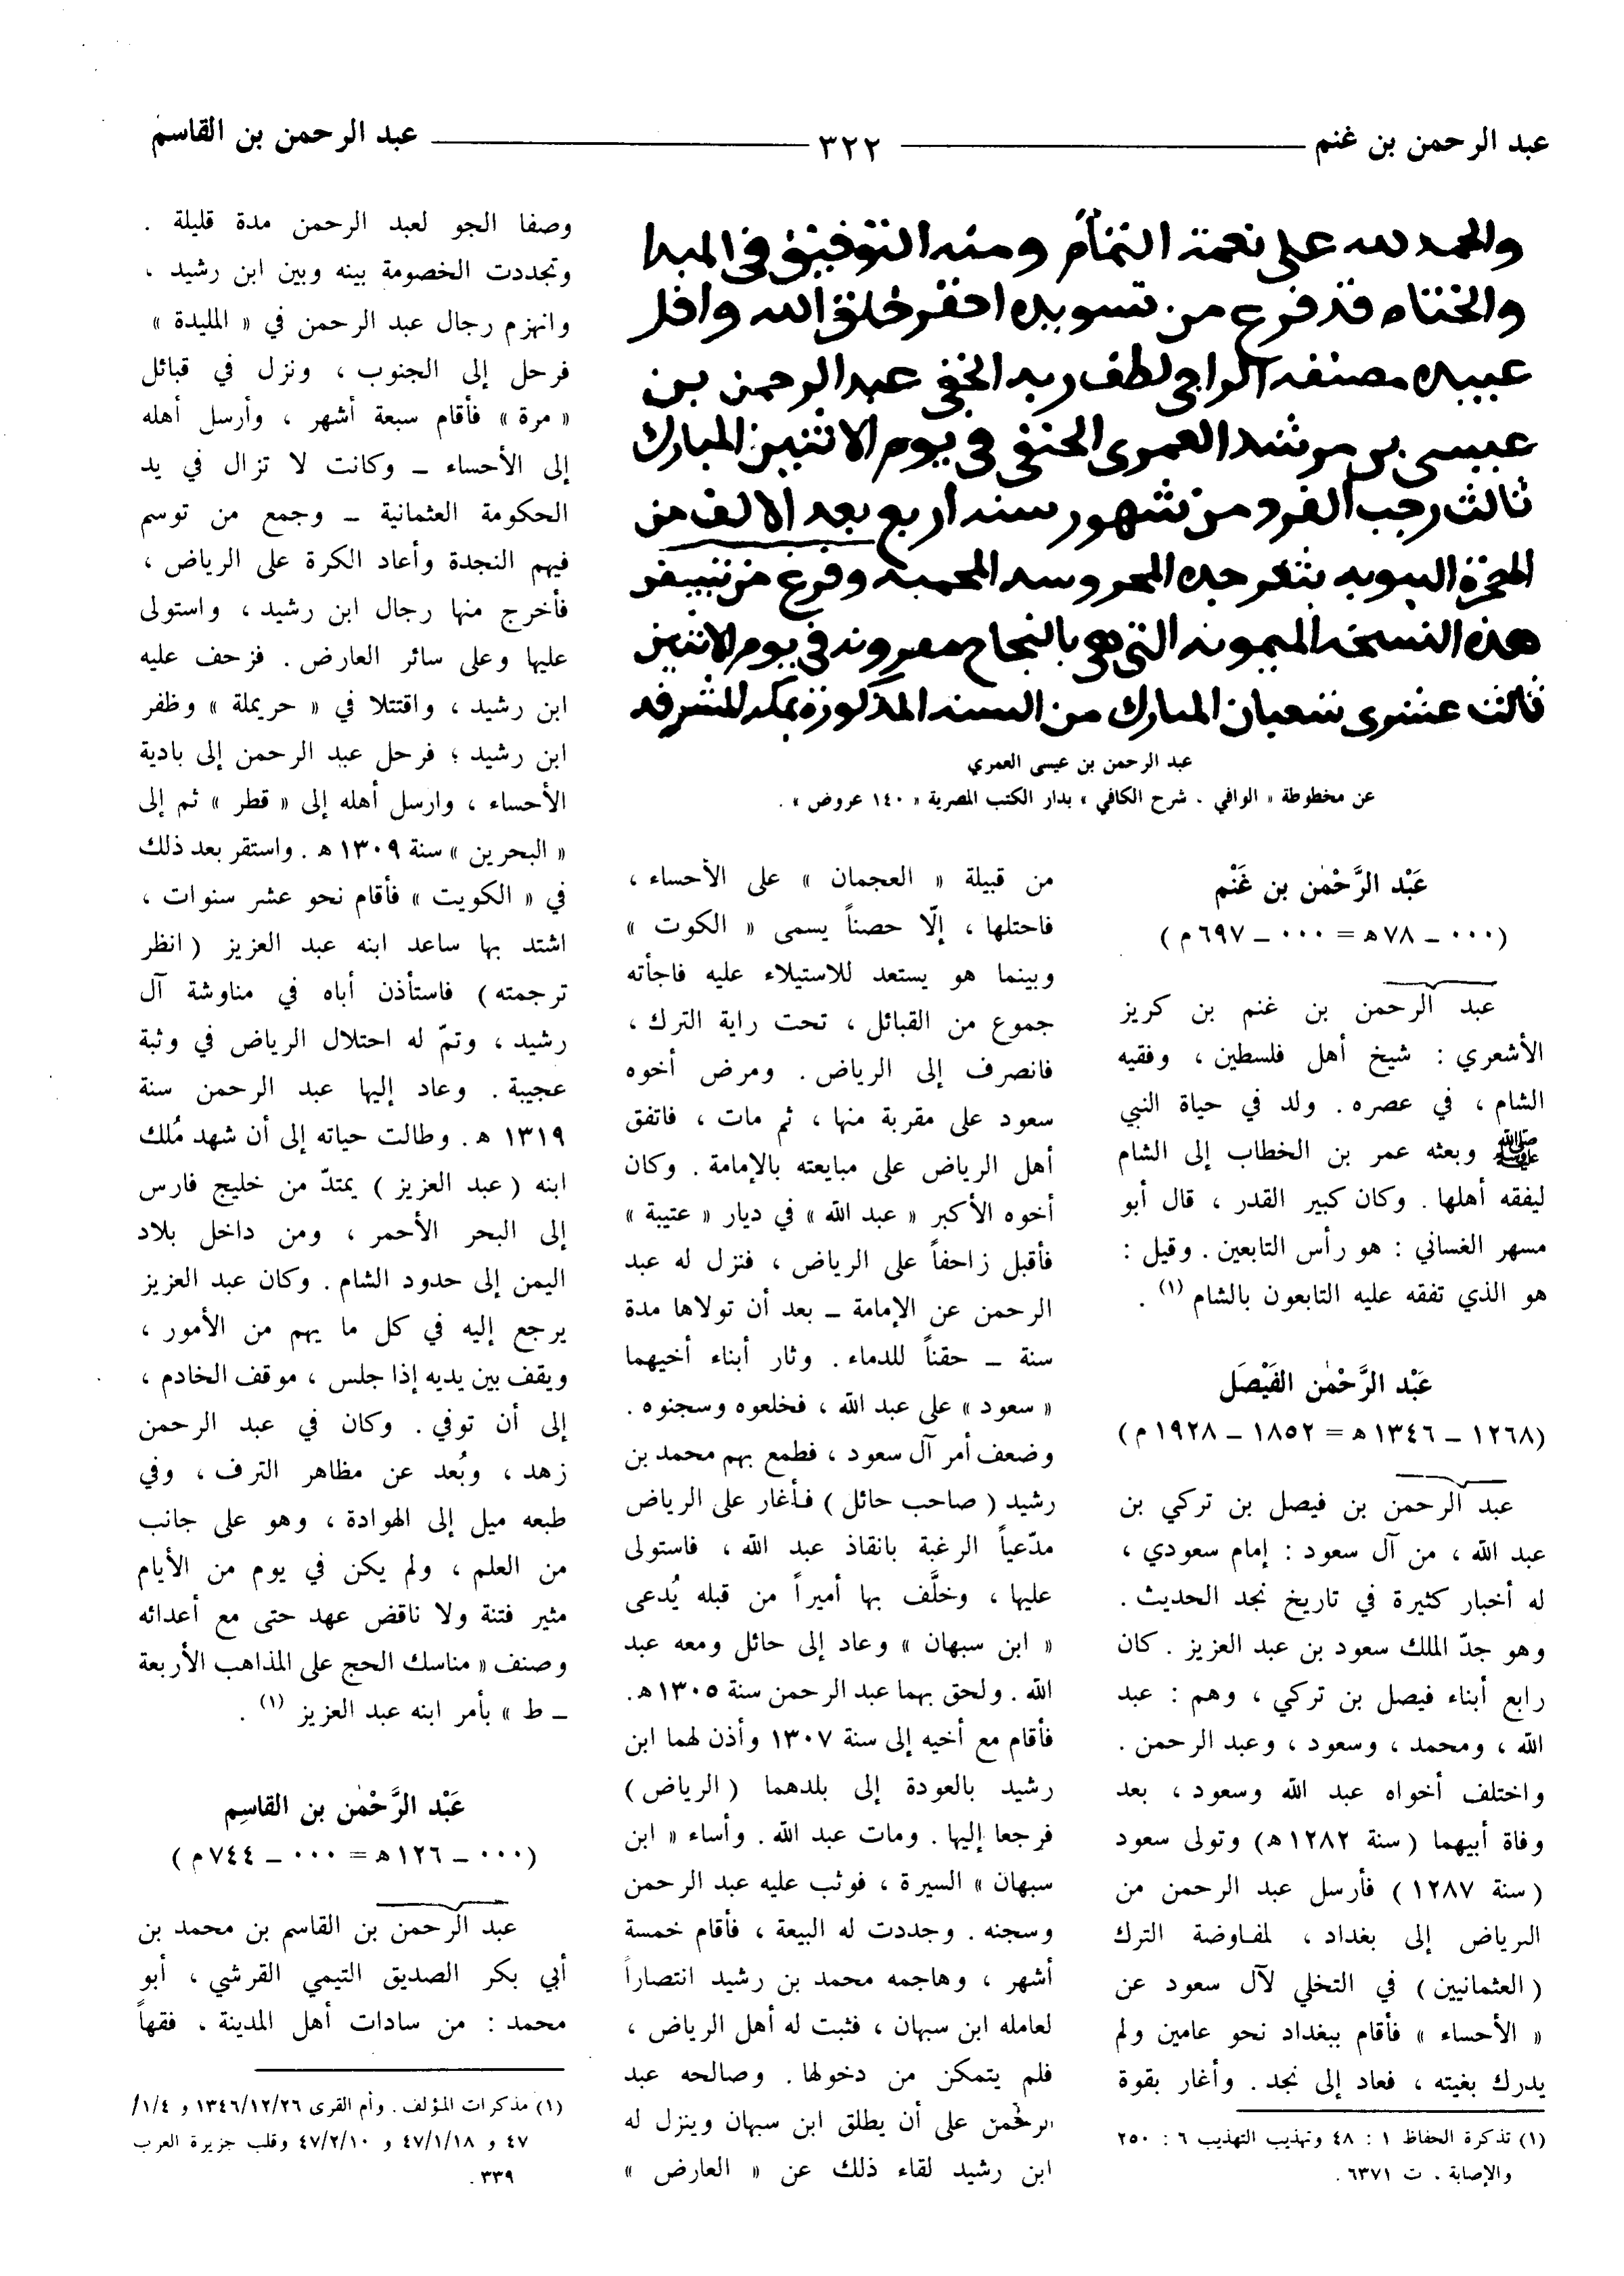 عبد الرحمن بن غنم
٣٢٢
عبد الرحمن بن القاسم
والحمد لله على نعمة التمام ومنه التوفيق في المبدا
والختام قد فرغ من تسويده احقر خلق الله واقل
عبيده مصنفه الراجى لطف ربه الخفى عبد الرحمن بن
عيسى بن مرشد العمرى الحنفى فى يوم الاثنين المبارك
ثالث رجب الفرد من شهور سنه اربع بعد الالف من
الهجرة النبويه بثغر جده المحروسه المحميه وفرغ من تبييض
هذه النسخه الميمونه التى هى بالنجاح مقرونه فى يوم الاثنين
ثالث عشرى شعبان المبارك من السنه المذكورة بمكه المشرفه
عبد الرحمن بن عيسى العمري
عن مخطوطة « الوافي . شرح الكافي » بدار الكتب المصرية « ١٤٠ عروض » .
عَبْد الرَّحْمٰن بن غَنْم
( ٠٠٠ ـ ٧٨ هـ = ٠٠٠ ـ ٦٩٧ م )
عبد الرحمن بن غنم بن كريز
الأشعري : شيخ أهل فلسطين ، وفقيه
الشام ، في عصره . ولد في حياة النبي
ﷺ وبعثه عمر بن الخطاب إلى الشام
ليفقه أهلها . وكان كبير القدر ، قال أبو
مسهر الغساني : هو رأس التابعين . وقيل :
هو الذي تفقه عليه التابعون بالشام (١) .
عَبْد الرَّحْمٰن الفَيْصَل
( ١٢٦٨ ـ ١٣٤٦ هـ = ١٨٥٢ ـ ١٩٢٨ م )
عبد الرحمن بن فيصل بن تركي بن
عبد الله ، من آل سعود : إمام سعودي ،
له أخبار كثيرة في تاريخ نجد الحديث .
وهو جدّ الملك سعود بن عبد العزيز . كان
رابع أبناء فيصل بن تركي ، وهم : عبد
الله ، ومحمد ، وسعود ، وعبد الرحمن .
واختلف أخواه عبد الله وسعود ، بعد
وفاة أبيهما ( سنة ١٢٨٢ هـ ) وتولى سعود
( سنة ١٢٨٧ ) فأرسل عبد الرحمن من
الرياض إلى بغداد ، لمفاوضة الترك
( العثمانيين ) في التخلي لآل سعود عن
« الأحساء » فأقام ببغداد نحو عامين ولم
يدرك بغيته ، فعاد إلى نجد . وأغار بقوة
(١) تذكرة الحفاظ ١ : ٤٨ وتهذيب التهذيب ٦ : ٢٥٠
والإصابة . ت ٦٣٧١ .
من قبيلة « العجمان » على الأحساء ،
فاحتلها ، إلّا حصناً يسمى « الكوت »
وبينما هو يستعد للاستيلاء عليه فاجأته
جموع من القبائل ، تحت راية الترك ،
فانصرف إلى الرياض . ومرض أخوه
سعود على مقربة منها ، ثم مات ، فاتفق
أهل الرياض على مبايعته بالإمامة . وكان
أخوه الأكبر « عبد الله » في ديار « عتيبة »
فأقبل زاحفاً على الرياض ، فنزل له عبد
الرحمن عن الإمامة ـ بعد أن تولاها مدة
سنة ـ حقناً للدماء . وثار أبناء أخيهما
« سعود » على عبد الله ، فخلعوه وسجنوه .
وضعف أمر آل سعود ، فطمع بهم محمد بن
رشيد ( صاحب حائل ) فأغار على الرياض
مدّعياً الرغبة بانقاذ عبد الله ، فاستولى
عليها ، وخلَّف بها أميراً من قبله يُدعى
« ابن سبهان » وعاد إلى حائل ومعه عبد
الله . ولحق بهما عبد الرحمن سنة ١٣٠٥ هـ .
فأقام مع أخيه إلى سنة ١٣٠٧ وأذن لهما ابن
رشيد بالعودة إلى بلدهما ( الرياض )
فرجعا إليها . ومات عبد الله . وأساء « ابن
سبهان » السيرة ، فوثب عليه عبد الرحمن
وسجنه . وجددت له البيعة ، فأقام خمسة
أشهر ، وهاجمه محمد بن رشيد انتصاراً
لعامله ابن سبهان ، فثبت له أهل الرياض ،
فلم يتمكن من دخولها . وصالحه عبد
الرحمن على أن يطلق ابن سبهان وينزل له
ابن رشيد لقاء ذلك عن « العارض »
وصفا الجو لعبد الرحمن مدة قليلة .
وتجددت الخصومة بينه وبين ابن رشيد ،
وانهزم رجال عبد الرحمن في « المليدة »
فرحل إلى الجنوب ، ونزل في قبائل
« مرة » فأقام سبعة أشهر ، وأرسل أهله
إلى الأحساء ـ وكانت لا تزال في يد
الحكومة العثمانية ـ وجمع من توسم
فيهم النجدة وأعاد الكرة على الرياض ،
فأخرج منها رجال ابن رشيد ، واستولى
عليها وعلى سائر العارض . فزحف عليه
ابن رشيد ، واقتتلا في « حريملة » وظفر
ابن رشيد ؛ فرحل عبد الرحمن إلى بادية
الأحساء ، وارسل أهله إلى « قطر » ثم إلى
« البحرين » سنة ١٣٠٩ هـ . واستقر بعد ذلك
في « الكويت » فأقام نحو عشر سنوات ،
اشتد بها ساعد ابنه عبد العزيز ( انظر
ترجمته ) فاستأذن أباه في مناوشة آل
رشيد ، وتمّ له احتلال الرياض في وثبة
عجيبة . وعاد إليها عبد الرحمن سنة
١٣١٩ هـ . وطالت حياته إلى أن شهد مُلك
ابنه ( عبد العزيز ) يمتدّ من خليج فارس
إلى البحر الأحمر ، ومن داخل بلاد
اليمن إلى حدود الشام . وكان عبد العزيز
يرجع إليه في كل ما يهم من الأمور ،
ويقف بين يديه إذا جلس ، موقف الخادم ،
إلى أن توفي . وكان في عبد الرحمن
زهد ، وبُعد عن مظاهر الترف ، وفي
طبعه ميل إلى الهوادة ، وهو على جانب
من العلم ، ولم يكن في يوم من الأيام
مثير فتنة ولا ناقض عهد حتى مع أعدائه
وصنف « مناسك الحج على المذاهب الأربعة
ـ ط » بأمر ابنه عبد العزيز (١) .
عَبْد الرَّحْمٰن بن القاسِم
( ٠٠٠ ـ ١٢٦ هـ = ٠٠٠ ـ ٧٤٤ م )
عبد الرحمن بن القاسم بن محمد بن
أبي بكر الصديق التيمي القرشي ، أبو
محمد : من سادات أهل المدينة ، فقهاً
(١) مذكرات المؤلف . وأم القرى ١٣٤٦/١٢/٢٦ و ١/٤/
٤٧ و ٤٧/١/١٨ و ٤٧/٢/١٠ وقلب جزيرة العرب
٣٣٩ .